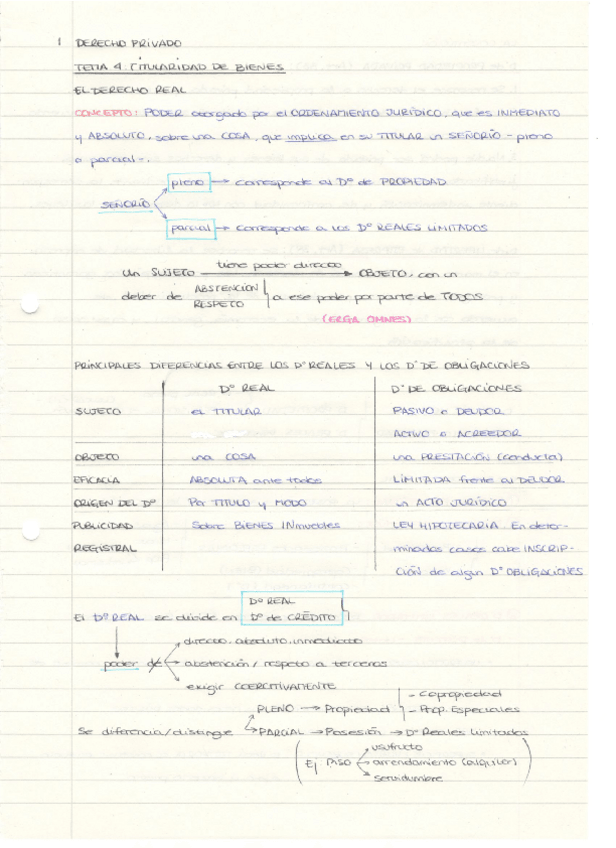 1 DERECHO PRIVADO
TEMA 4: TITULARIDAD DE BIENES
EL DERECHO REAL
CONCEPTO: PODER otorgado por el ORDENAMIENTO JURÍDICO, que es INMEDIATO
y ABSOLUTO, sobre una COSA, que implica en su TITULAR un SEÑORÍO - pleno
o parcial -.
pleno → corresponde al Dº de PROPIEDAD
SEÑORÍO
parcial → corresponde a los Dº REALES LIMITADOS
un SUJETO tiene poder directo → OBJETO, con un
deber de ABSTENCIÓN RESPETO a ese poder por parte de TODOS
(ERGA OMNES)
PRINCIPALES DIFERENCIAS ENTRE LOS Dº REALES Y LOS Dº DE OBLIGACIONES
Dº REAL Dº DE OBLIGACIONES
SUJETO EL TITULAR PASIVO o DEUDOR
ACTIVO o ACREEDOR
OBJETO una COSA una PRESTACIÓN (conducta)
EFICACIA ABSOLUTA ante todos LIMITADA frente al DEUDOR
ORIGEN DEL Dº Por TITULO y MODO un ACTO JURÍDICO
PUBLICIDAD Sobre BIENES INmuebles LEY HIPOTECARIA. En deter-
REGISTRAL minados casos cabe INSCRIP-
CIÓN de algún Dº OBLIGACIONES
Dº REAL
El Dº REAL se divide en Dº de CRÉDITO
directo, absoluto, inmediato
poder de abstención / respeto a terceros
exigir COERCITIVAMENTE
PLENO → Propiedad - Copropiedad
- Prop. Especiales
Se diferencia/distingue PARCIAL → Posesión → Dº Reales Limitados
usufructo
Ej PISO arrendamiento (alquiler)
servidumbre